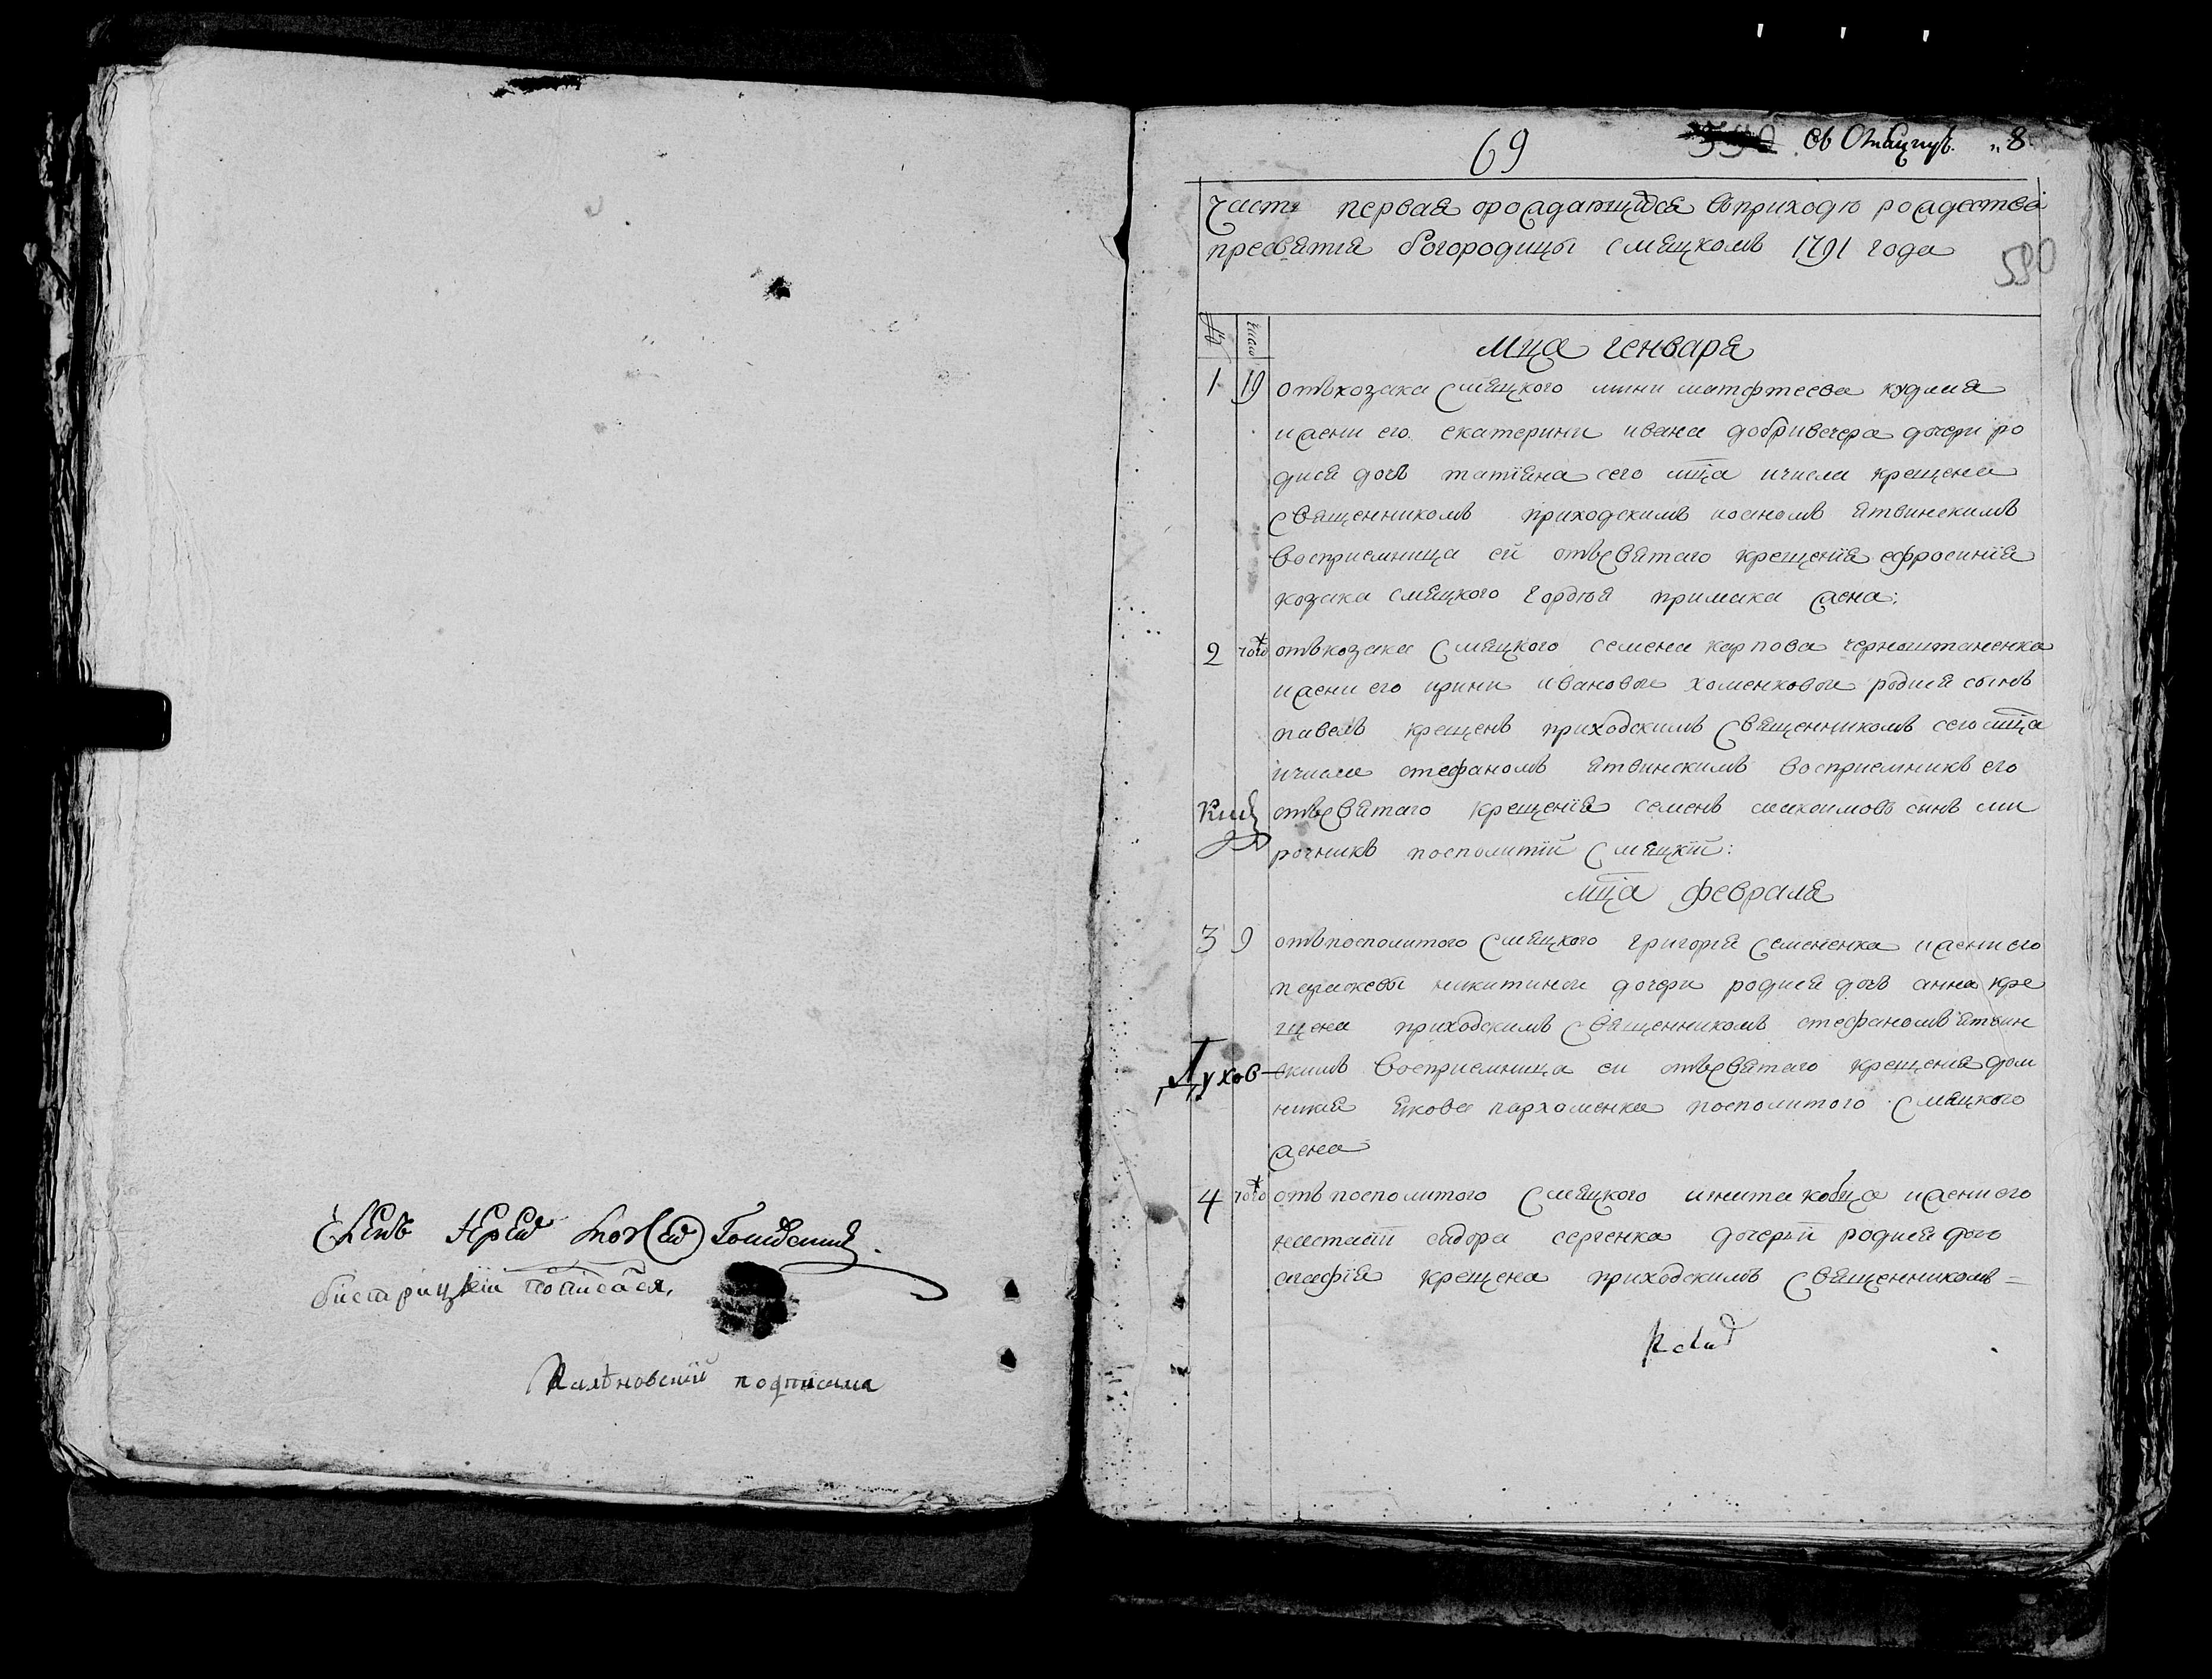 бистрицкїи пописася,
подписалъ
69
8
часть первая о рождающихся въ приходѣ рождества
пресвятїя богородицы смяцкомъ 1791 года
590
мца генваря
1 19 отъ козака смяцкого мини матфтеева кудмея
и жени его екатерини ивана добривечера дочери ро
дися дочъ татїяна сего мца и числа крещена
священникомъ приходскимъ иоаномъ ятвинскимъ
восприемница ей отъ святаго крещенїя ефросинїя
козака смяцкого гордѣя примака жена:
2 тогож отъ козака смяцкого семена карпова черноштаненка
и жени его ирини ивановои хоменковои родися сынъ
павелъ крещенъ приходскимъ священникомъ сего мца
и числа стефаномъ ятвинскимъ восприемникъ его
отъ святаго крещенїя семенъ максимовъ сынъ ми
рочникъ посполитїй смяцкїй:
мца февраля
3 9 отъ посполитого смяцкого григорїя семененка и жени его
никитиной дочери родися дочъ анна кре
щена приходскимъ священникомъ стефаномъ ятвин
Духов
скимъ восприемница еи отъ святаго крещенїя дом
никїя якова пархоменка посполитого смяцкого
жена
4 тогож отъ посполитого смяцкого игната кобца и жени его
настасїи сидора сергенка дочерїи родися дочъ
агафїя крещена приходскимъ священникомъ =